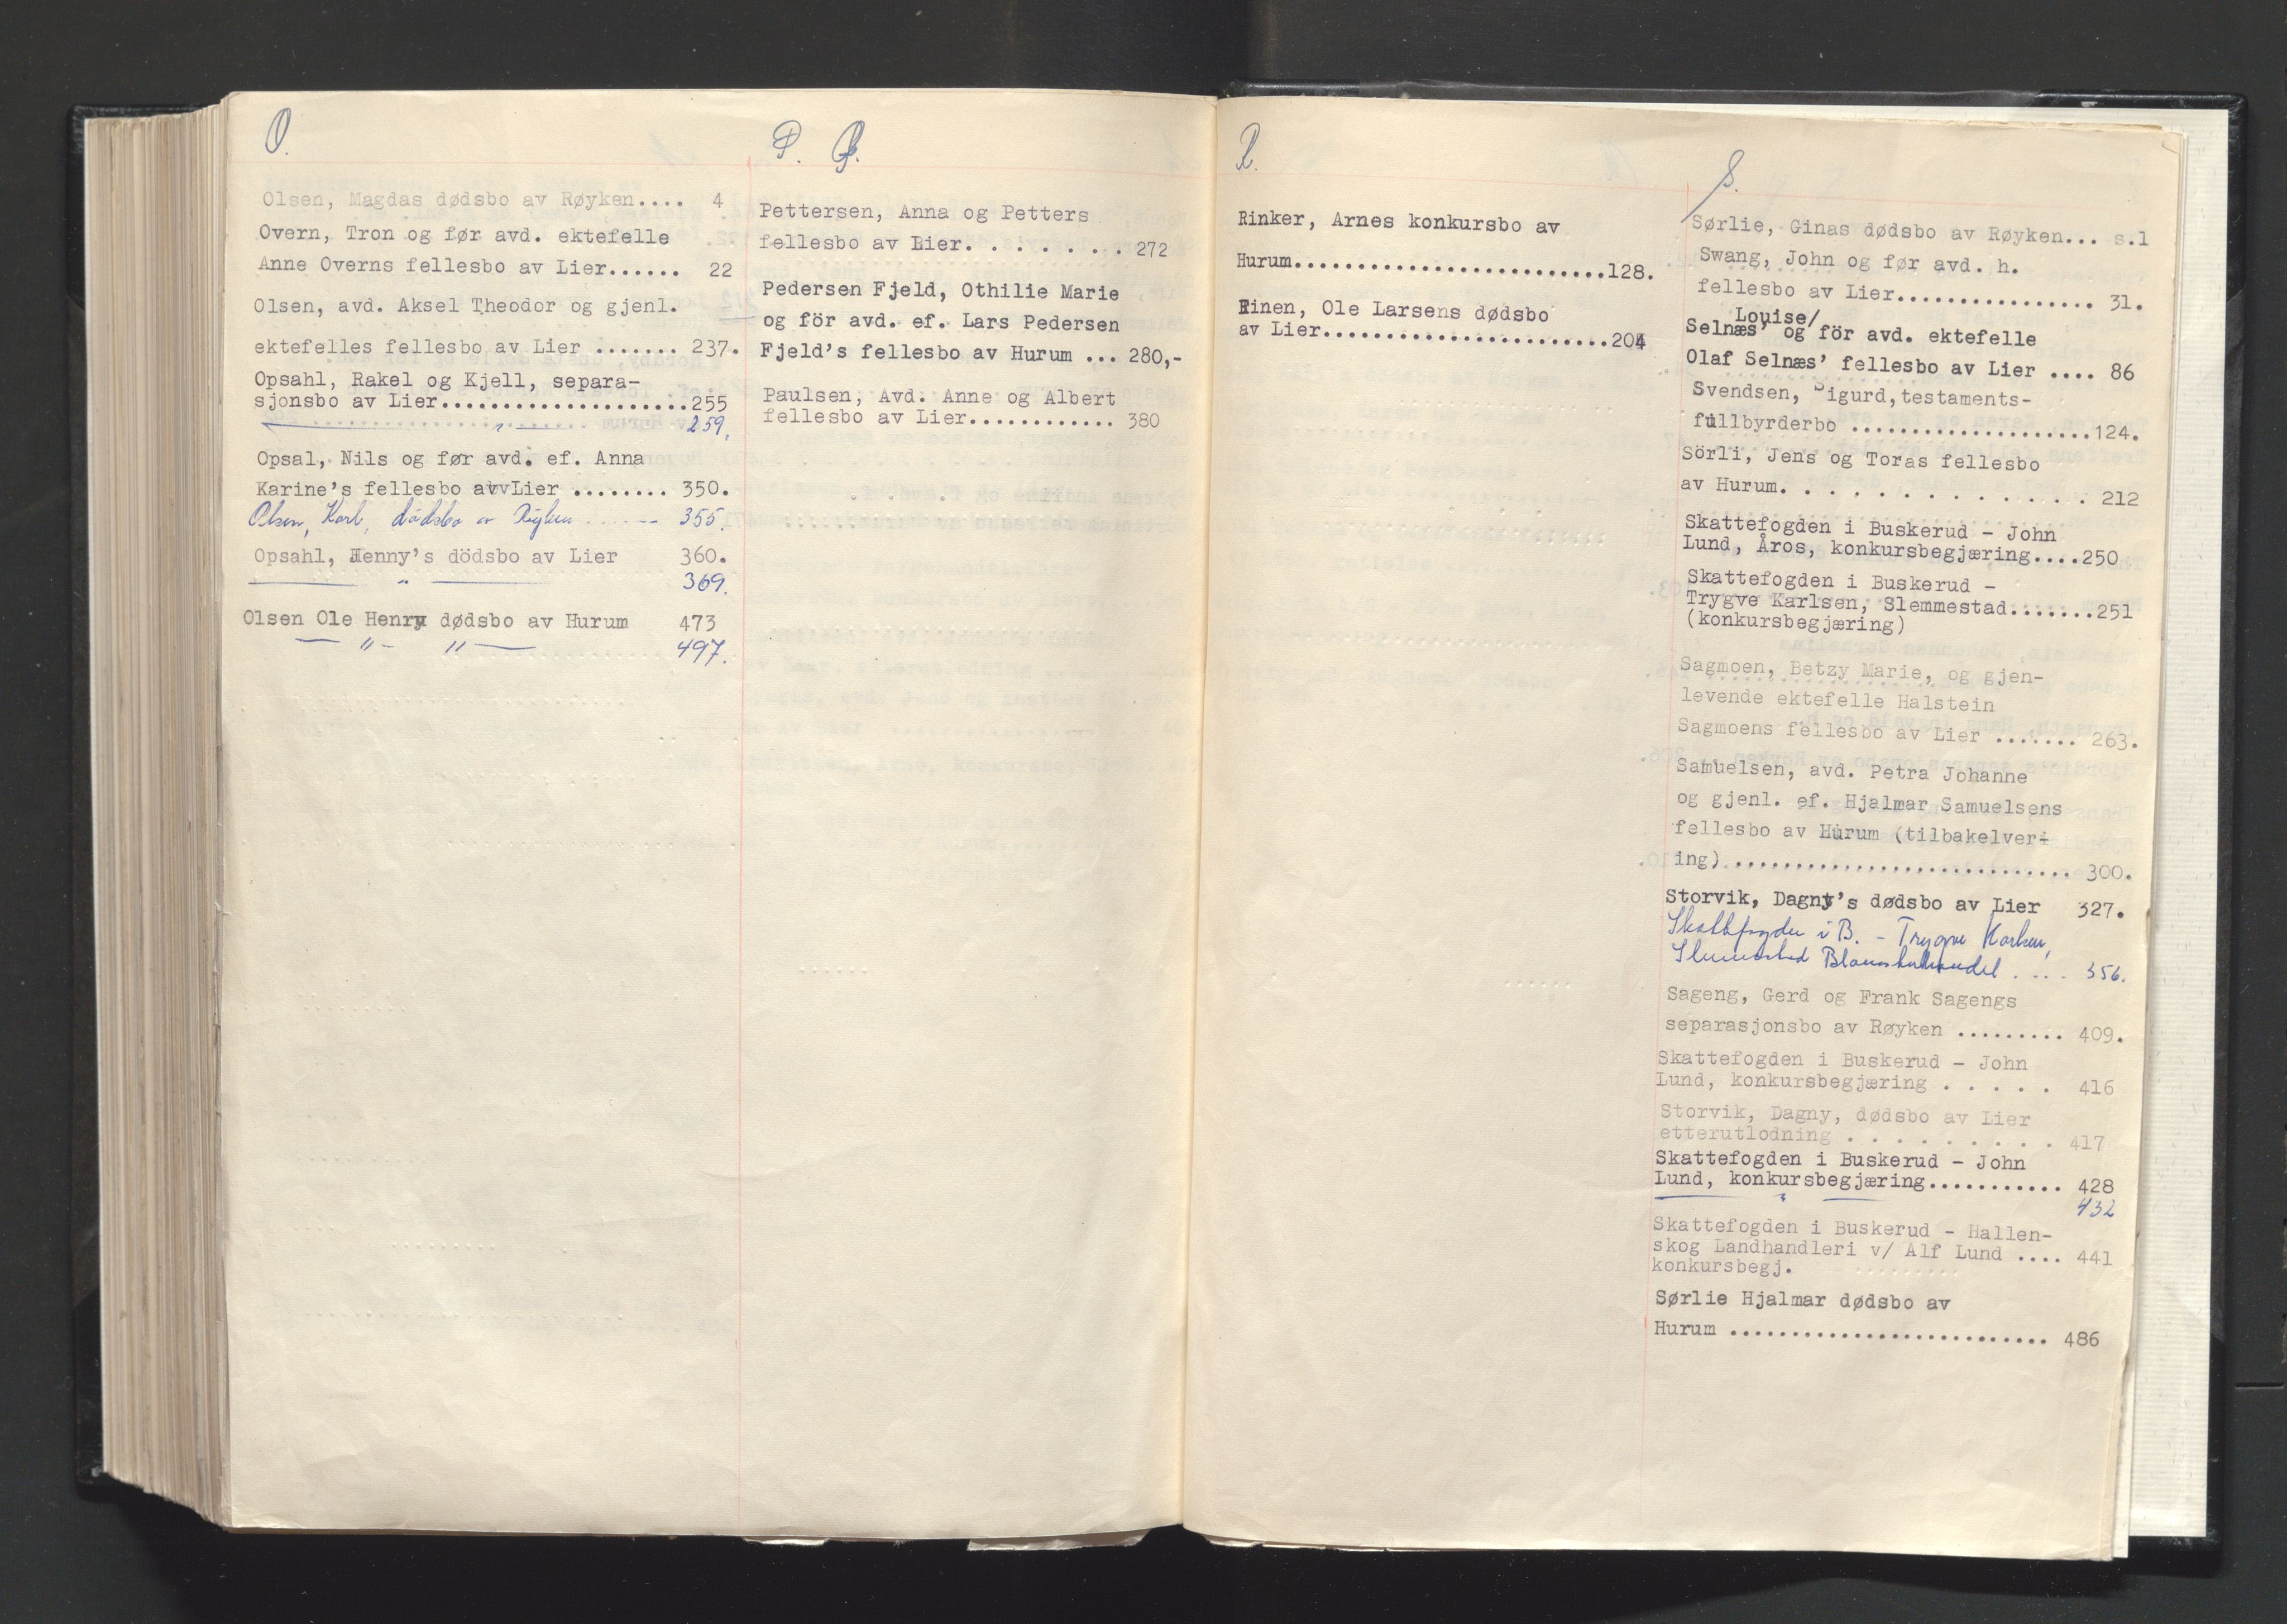 O.
Olsen, Magdas dødsbo av Røyken.... 4
Overn, Tron og før avd. ektefelle
Anne Overns fellesbo av Lier...... 22
Olsen, avd. Aksel Theodor og gjenl.
ektefelles fellesbo av Lier ....... 237.
Opsahl, Rakel og Kjell, separa-
sjonsbo av Lier....................255
— " — 259.
Opsal, Nils og før avd. ef. Anna
Karine's fellesbo avvLier ........ 350.
Olsen, Karl, dødsbo av Røyken ..... 355.
Opsahl, Henny's dödsbo av Lier 360.
— " — 369.
Olsen Ole Henry dødsbo av Hurum 473
— " — " — 497.
P. Q.
Pettersen, Anna og Petters
fellesbo av Lier. . . . . . . . 272
Pedersen Fjeld, Othilie Marie
og för avd. ef. Lars Pedersen
Fjeld's fellesbo av Hurum ... 280,-
Paulsen, Avd. Anne og Albert
fellesbo av Lier............ 380
R.
Rinker, Arnes konkursbo av
Hurum.........................128.
Rinen, Ole Larsens dødsbo
av Lier.......................204
S.
Sørlie, Ginas dødsbo av Røyken... s.1
Swang, John og før avd. h.
fellesbo av Lier................ 31.
Louise/
Selnæs' og för avd. ektefelle
Olaf Selnæs' fellesbo av Lier .... 86
Svendsen, Sigurd,testaments-
fullbyrderbo ...................124.
Sörli, Jens og Toras fellesbo
av Hurum. . . . . . . . . . . . . . 212
Skattefogden i Buskerud - John
Lund, Åros, konkursbegjæring....250
Skattefogden i Buskerud -
Trygve Karlsen, Slemmestad.......251
(konkursbegjæring)
Sagmoen, Betzy Marie, og gjen-
levende ektefelle Halstein
Sagmoens fellesbo av Lier ....... 263.
Samuelsen, avd. Petra Johanne
og gjenl. ef. Hjalmar Samuelsens
fellesbo av Hurum (tilbakelver-
ing)........................... 300.
Storvik, Dagny's dødsbo av Lier 327.
Skattefogden i B. - Trygve Karlsen,
Slemmestad Blomsterhandel ..... 356.
Sageng, Gerd og Frank Sagengs
separasjonsbo av Røyken ......... 409.
Skattefogden i Buskerud - John
Lund, konkursbegjæring . . . . . 416
Storvik, Dagny, dødsbo av Lier
etterutlodning . . . . . . . . . 417
Skattefogden i Buskerud - John
Lund, konkursbegjæring........... 428
— " — 432
Skattefogden i Buskerud - Hallen-
skog Landhandleri v/ Alf Lund .... 441
konkursbegj.
Sørlie Hjalmar dødsbo av
Hurum .......................... 486